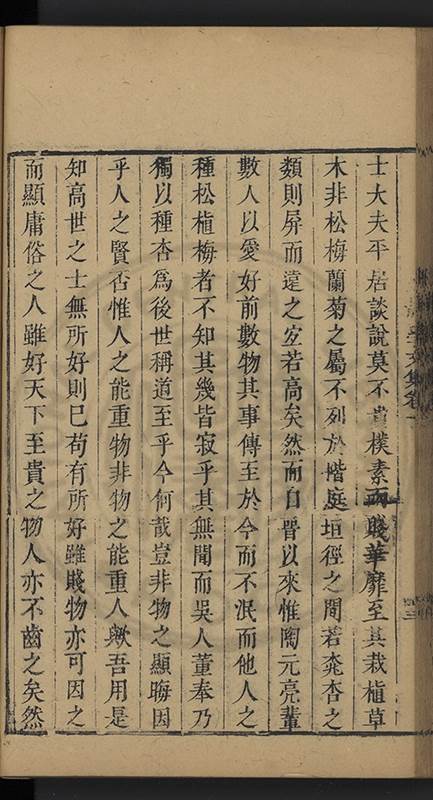 士大夫平居談說莫不貴樸素而賤華靡至其栽植草
木非松梅蘭菊之屬不列於堦庭垣徑之間若桃杏之
類則屏而遠之宜若高矣然而自晋以來惟陶元亮輩
數人以愛好前數物其事傳至於今而不泯而他人之
種松植梅者不知其幾皆寂乎其無聞而吳人董奉乃
獨以種杏爲後世稱道至乎今何哉豈非物之顯晦因
乎人之賢否惟人之能重物非物之能重人歟吾用是
知高世之士無所好則巳苟有所好雖賤物亦可因之
而顯庸俗之人雖好天下至貴之物人亦不齒之矣然